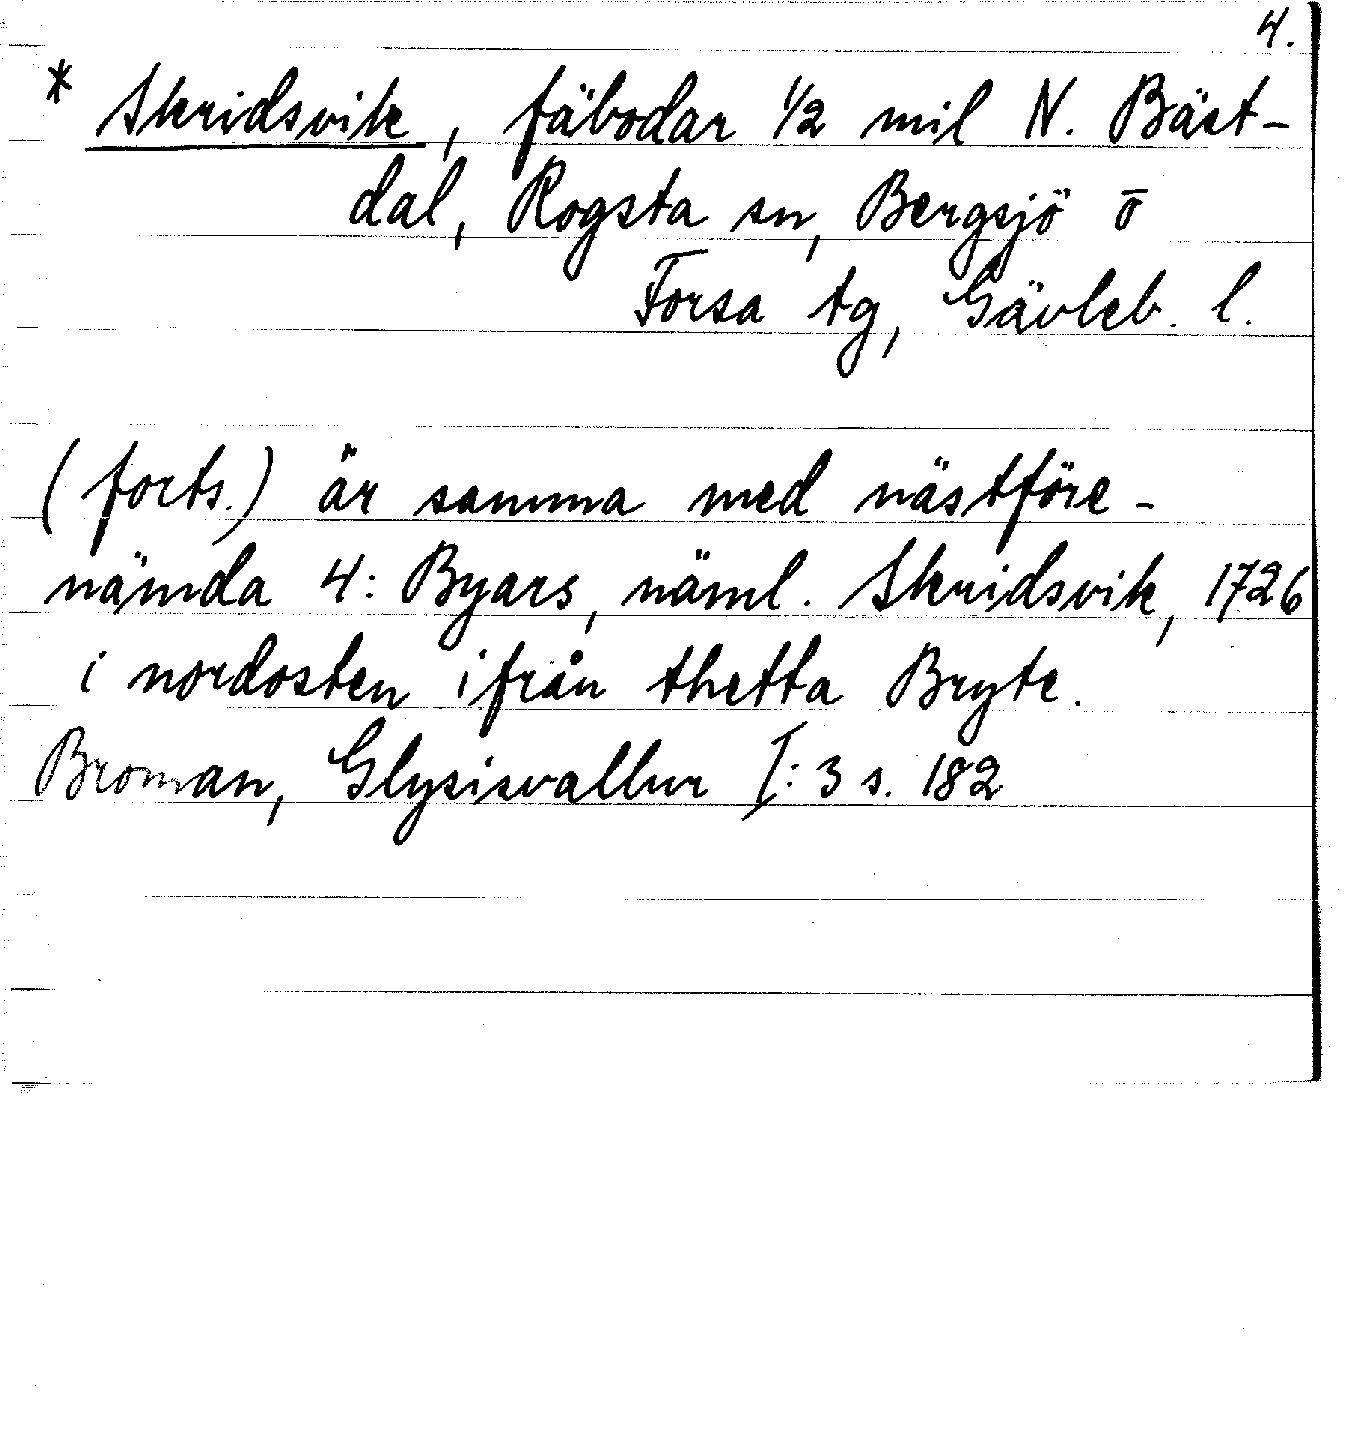 4.
* Skridsvik, fäbodar 1/2 mil N. Bäst-
dal, Rogsta sn, Bergsjö o
Forsa tg, Gävleb. l.
(forts.) är samma med nästföre-
nämda 4: Byars, näml. Skridsvik, 1726
i nordosten ifrån thetta Bryte.
Broman, Glysisvallur I:3 s. 182